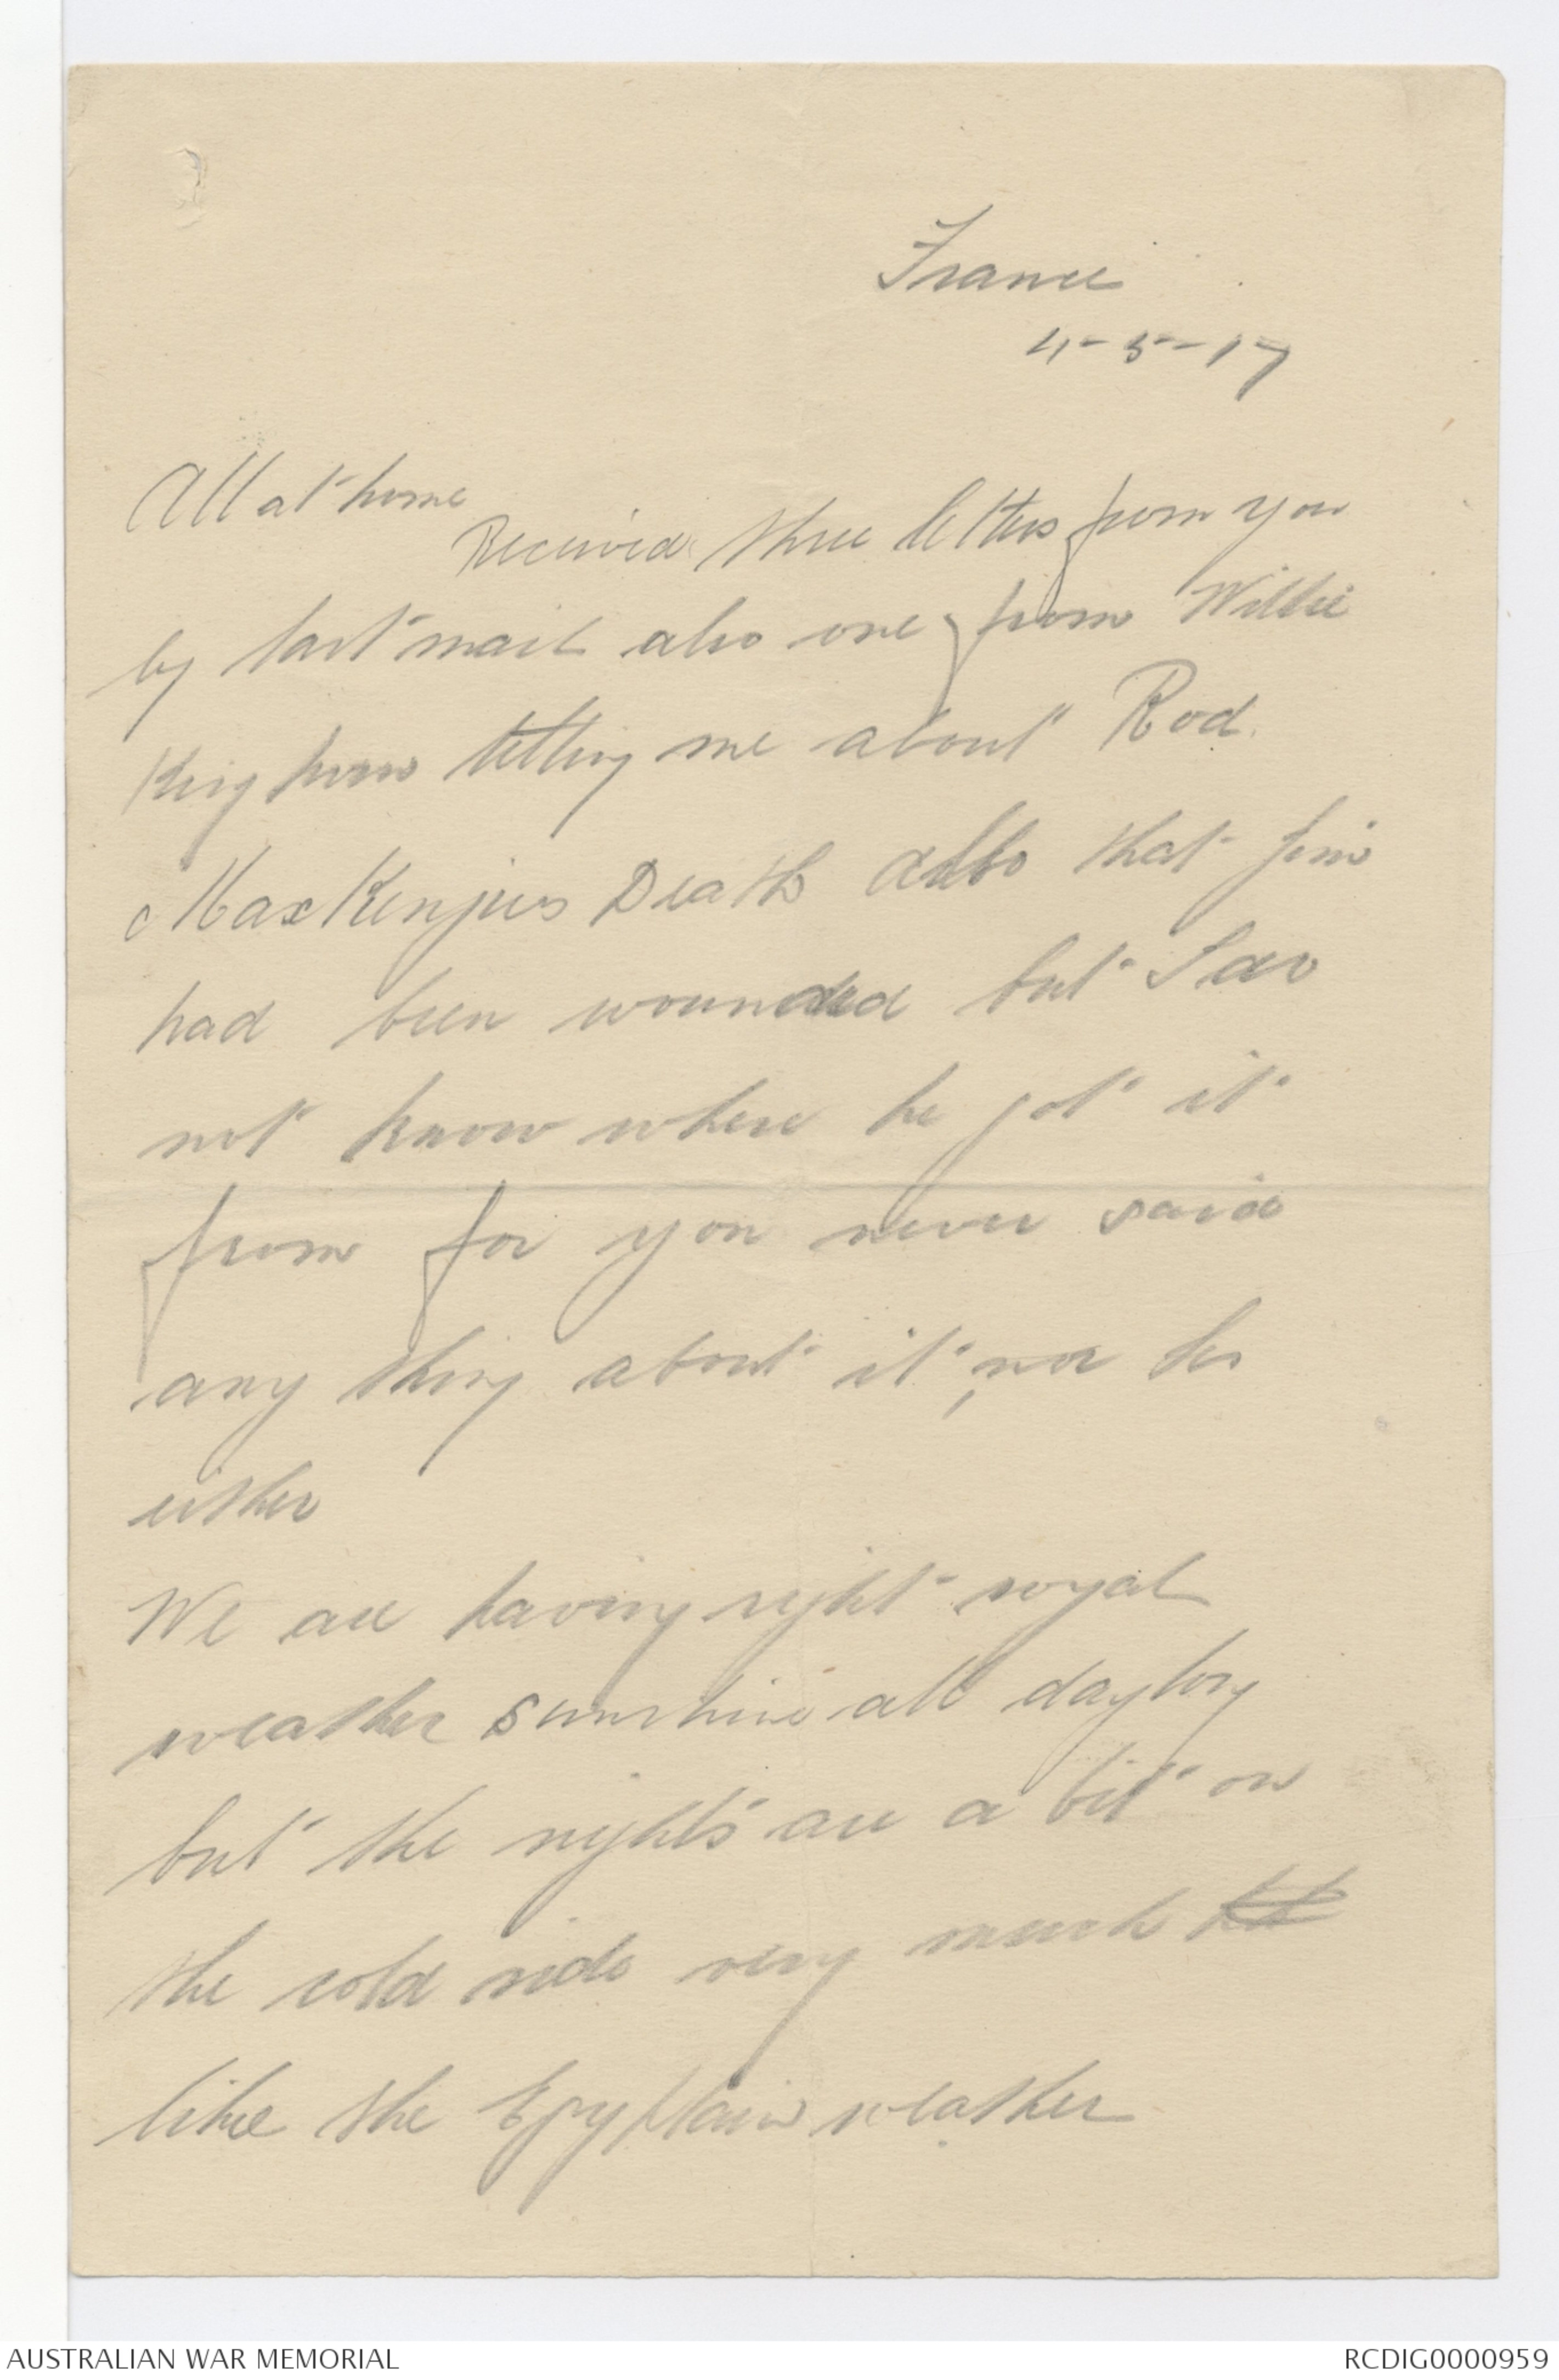 France
4-5-17
All at home
Received three letters from you
by last mail also one from Willie
Kinghorn telling me about Rod.
MacKenjies Death Also that Jim
had been wounded but I do
not know where he got it
from for you never said
any thing about it, nor he
either
We are having right royal
weather sunshine all day long
but the nights are a bit on
the cold side very much
like the Egyptain weather
AUSTRALIAN WAR MEMORIAL
RCDIG0000959